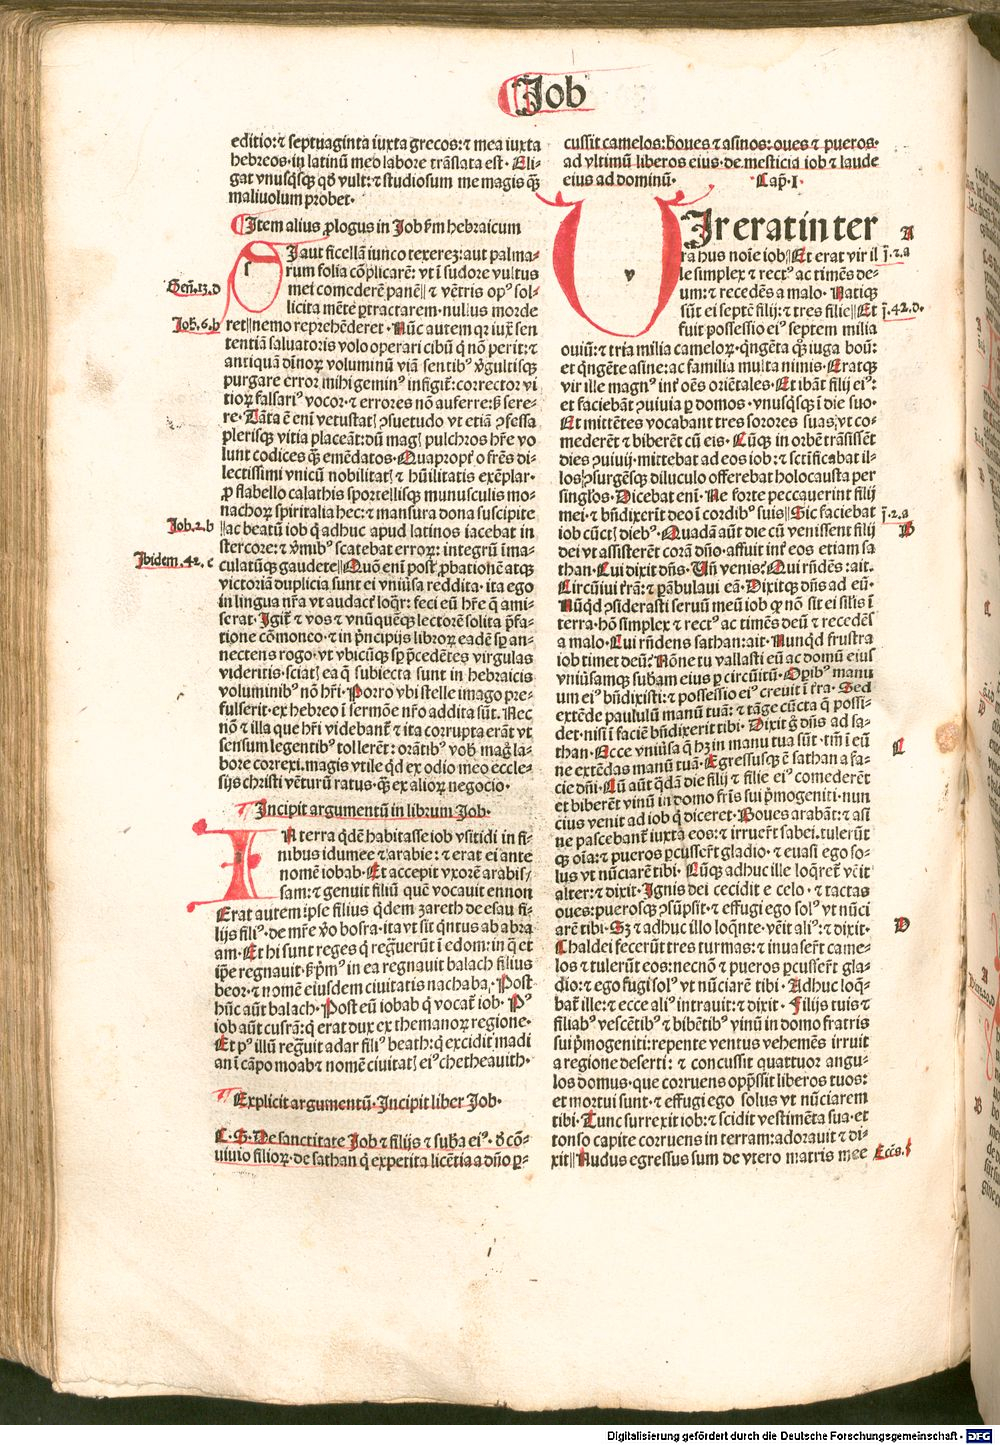 Job
editio: ⁊ septuaginta iuxta grecos: ⁊ mea iuxta
hebreos· in latinū meo labore trāslata est· Eli-
gat vnusq̄sq̄ qđ vult: ⁊ studiosum me magis q̄ꝫ
maliuolum probet·
Item alius ꝓlogus in Job ẜm hebraicum
SI aut ficellā iunco texereꝫ: aut palma-
rum folia cōplicarē: vt ī sudore vultus
mei comederē panē‖ ⁊ vētris opꝰ sol-
licita mēte ꝑtractarem· nullus morde
ret‖ nemo reprehēderet· Nūc autem qꝛ iuxͣ sen
tentiā saluatoris volo operari cibū q̄ nō perit: ⁊
antiquā dīnoꝝ voluminū viā sentibꝰ vgultisq̄
purgare error mihi geminꝰ infigit̄: corrector vi
tioꝝ falsariꝰ vocor· ⁊ errores nō auferre: sꝫ sere-
re· Tāta ē enī vetustatꝭ ꝯsuetudo vt etiā ꝯfessa
plerisq̄ vitia placeāt: dū magꝭ pulchros hr̄e vo
lunt codices q̄ꝫ emēdatos· Quapropt̄ o fr̄es di-
lectissimi vnicū nobilitatꝭ ⁊ hūilitatis exēplar·
ꝓ flabello calathis sportellisq̄ munusculis mo-
nachoꝝ spiritalia hec: ⁊ mansura dona suscipite
‖ac beatū iob q̇ adhuc apud latinos iacebat in
stercore: ⁊ v̓mibꝰ scatebat erroꝝ: integrū īma-
culatūq̄ gaudete‖ Quō enī post ꝓbationē atq̄
victoriā duplicia sunt ei vniūsa reddita· ita ego
in lingua nr̄a vt audact̄ loq̄r: feci eū hr̄e q̄ ami-
serat· Igit̄ ⁊ vos ⁊ vnūquēcq̄ lectorē solita p̄fa-
tione cōmoneo· ⁊ in p̓ncipijs libroꝝ eadē sꝑ an-
nectens rogo· vt vbicūq̄ sꝑ p̄cedētes virgulas
videritis· sciatꝭ ea q̄ subiecta sunt in hebraicis
voluminibꝰ nō hr̄i· Porro vbi stelle imago pre-
fulserit· ex hebreo ī sermōe nr̄o addita sūt· Nec
nō ⁊ illa que hr̄i videbant̄ ⁊ ita corrupta erāt vt
sensum legentibꝰ tollerēt: orātibꝰ vob̄ magꝭ la-
bore correxi. magis vtile qđ ex odio meo eccle-
sijs christi vētur̄ū ratus· q̄ꝫ ex alioꝝ negocio·
Incipit argumentū in librum Job·
IN terra q̇dē habitasse iob vsitidi in fi-
nibus idumee ⁊ arabie: ⁊ erat ei ante
nomē iobab· Et accepit vxorē arabis-
sam: ⁊ genuit filiū quē vocauit ennon
Erat autem ip̄e filius q̇dem zareth de esau fi-
lijs filiꝰ· de mr̄e v̓o bosra· ita vt sit q̇ntus ab abra
am· Et hi sunt reges q̇ regnuerūt ī edom: in q̇ et
ip̄e regnauit· ẜ p̓mꝰ in ea regnauit balach filius
beor· ⁊ nomē eiusdem ciuitatis nachaba· Post
hūc aūt balach· Post eū iobab q̇ vocat̄ iob· Pꝰ
iob aūt cusrā: q̇ erat dux ex themanoꝝ regione·
Et pꝰ illū regnuit adar filiꝰ beath: q̇ excidit̄ madi
an ī cāpo moab ⁊ nomē ciuitatꝭ eiꝰ chetheauith·
Explicit argumentū· Incipit liber Job·
C· S· De sanctitate Job ⁊ filijs ⁊ sub̄a eiꝰ· ⁊ đ cō-
uiuio filioꝝ· de sathan q̇ expetita licētia a dn̄o ꝑ-
Geñ. 13. d
Job. 6. b
Job. 2. b
Ibidem. 42. c
cussit camelos: boues ⁊ asinos: oues ⁊ pueros·
ad vltimū liberos eius· de mesticia iob ⁊ laude
eius ad dominū· Cap̄· I·
VIr erat in ter
ra hus noīe iob‖ Et erat vir il
le simplex ⁊ rectꝰ ac timēs de-
um: ⁊ recedēs a malo· Natiq̄
sūt ei septē filij: ⁊ tres filie‖ Et
fuit possessio eiꝰ septem milia
ouiū: ⁊ tria milia cameloꝝ· q̇ngēta q̄ꝫ iuga boū:
et q̇ngēte asine: ac familia multa nimis· Eratq̄
vir ille magnꝰ int̄ oēs oriētales· Et ibāt filij eiꝰ:
et faciebāt ꝯuiuia ꝑ domos· vnusq̄sq̄ ī die suo·
Et mittētes vocabant tres sorores suas: vt co-
mederēt ⁊ biberēt cū eis· Cūq̄ in orbē trāsissēt
dies ꝯuiuij· mittebat ad eos iob: ⁊ sctīficabat il-
los: ꝯsurgēsq̄ diluculo offerebat holocausta per
singlos· Dicebat enī· Ne forte peccauerint filij
mei· ⁊ bn̄dixerīt deo ī cordibꝰ suis‖ Sic faciebat
iob cūctꝭ diebꝰ· Quadā aūt die cū venissent filij
dei vt assisterēt corā dn̄o· affuit int̄ eos etiam sa
than· Cui dixit dn̄s· Vn̄ venis? Qui rn̄dēs: ait.
Circūiui t̄rā: ⁊ ꝑābulaui eā· Dixitq̄ dn̄s ad eū·
Nūqđ ꝯsiderasti seruū meū iob qꝛ nō sit ei siĺis ī
terra· hō simplex ⁊ rectꝰ ac timēs deū ⁊ recedēs
a malo· Cui rn̄dens sathan: ait· Nunqđ frustra
iob timet deū? Nōne tu vallasti eū ac domū eius
vniūsamq̄ sub̄am eius ꝑ circūitū· Oꝑibꝰ manu
um eiꝰ bn̄dixisti: ⁊ possessio eiꝰ creuit ī t̄ra· Sed
extēde paululū manū tuā: ⁊ tāge cūcta q̄ possi-
det· nisi ī faciē bn̄dixerit tibi· Dixit g̊ dn̄s ad sa-
than· Ecce vniūsa q̄ hꝫ in manu tua sūt· tm̄ ī eū
ne extēdas manū tuā· Egressusq̄ ē sathan a fa-
cie dn̄i· Cū aūt q̇dā die filij ⁊ filie eiꝰ comederēt
et biberēt vinū in domo fr̄is sui p̓mogeniti· nun
cius venit ad iob q̇ diceret· Boues arabāt: ⁊ asi
ne pascebant̄ iuxta eos: ⁊ irruer̄t sabei. tulerūt
q̄ oīa: ⁊ pueros ꝑcusser̄t gladio· ⁊ euasi ego so-
lus vt nūciarē tibi· Cūq̄ adhuc ille loq̄ret̄ vēit
alter: ⁊ dixit· Ignis dei cecidit e celo· ⁊ tactas
oues: puerosq̄ ꝯsūpsit· ⁊ effugi ego solꝰ vt nūci
arē tibi· Sꝫ ⁊ adhuc illo loq̄nte· vēit aliꝰ: ⁊ dixit·
Chaldei fecerūt tres turmas: ⁊ inuaser̄t came-
los ⁊ tulerūt eos: necnō ⁊ pueros ꝑcusser̄t gla-
dio: ⁊ ego fugi solꝰ vt nūciarē tibi· Adhuc loq̄-
bat̄ ille: ⁊ ecce aliꝰ intrauit: ⁊ dixit· Filijs tuis ⁊
filiabꝰ vescētibꝰ ⁊ bibētibꝰ vinū in domo fratris
sui p̓mogeniti: repente ventus vehemēs irruit
a regione deserti: ⁊ concussit quattuor angu-
los domus· que corruens opp̄ssit liberos tuos:
et mortui sunt· ⁊ effugi ego solus vt nūciarem
tibi· Tunc surrexit iob: ⁊ scidit vestimēta sua· et
tonso capite corruens in terram: adorauit ⁊ di-
xit‖ Nudus egressus sum de vtero matris mee
A
j. 2. a
j. 42. d·
j. 2. a
B
C
D
Eccs. 5
Digitalisierung gefördert durch die Deutsche Forschungsgemeinschaft - DFG